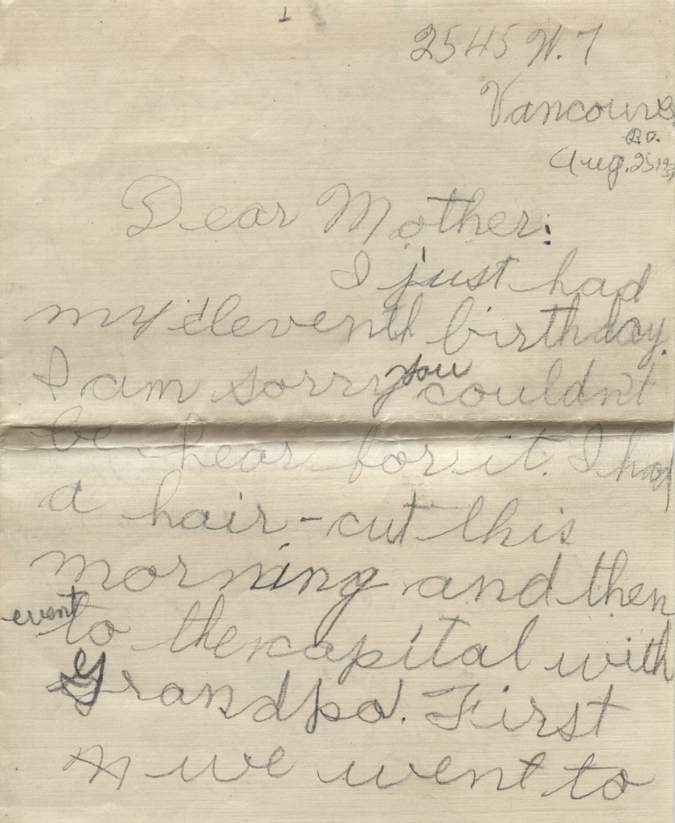 1
2545 W. 7
Vancouver
B.C.
Aug. 25 193
Dear Mother:
I just had
my eleventh birthday.
I am sorry you couldn't
be hear for it. I had
a hair-cut this
morning and then
went to the capital with
Grandpa. First
we went to